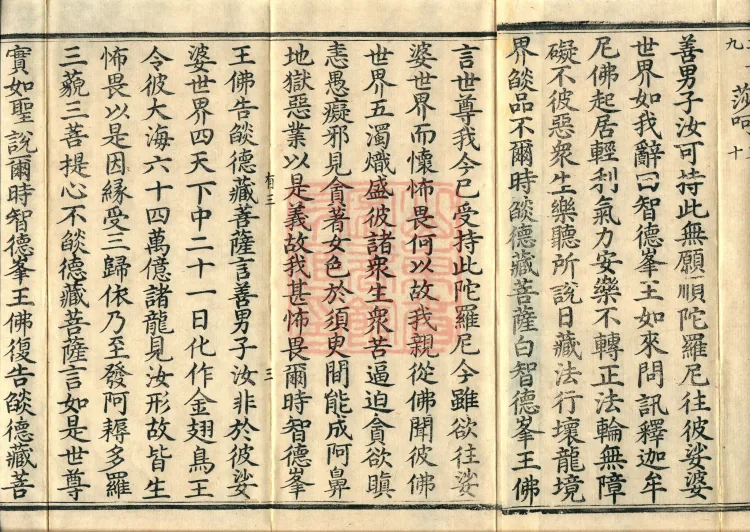 莎呵 十
善男子汝可持此無願順陀羅尼往彼娑婆
世界如我辭曰智德峯王如來問訊釋迦牟
尼佛起居輕利氣力安樂不轉正法輪無障
礙不彼惡衆生樂聽所說日藏法行壞龍境
界燄品不爾時燄德藏菩薩白智德峯王佛
言世尊我今已受持此陀羅尼今雖欲往娑
婆世界而懷怖畏何以故我親從佛聞彼佛
世界五濁熾盛彼諸衆生衆苦逼迫貪欲瞋
恚愚癡邪見貪著女色於須臾間能成阿鼻
地獄惡業以是義故我甚怖畏爾時智德峯
王佛告燄德藏菩薩言善男子汝非於彼娑
婆世界四天下中二十一日化作金翅鳥王
令彼大海六十四萬億諸龍見汝形故皆生
怖畏以是因緣受三歸依乃至發阿耨多羅
三藐三菩提心不燄德藏菩薩言如是世尊
實如聖說爾時智德峯王佛復告燄德藏菩